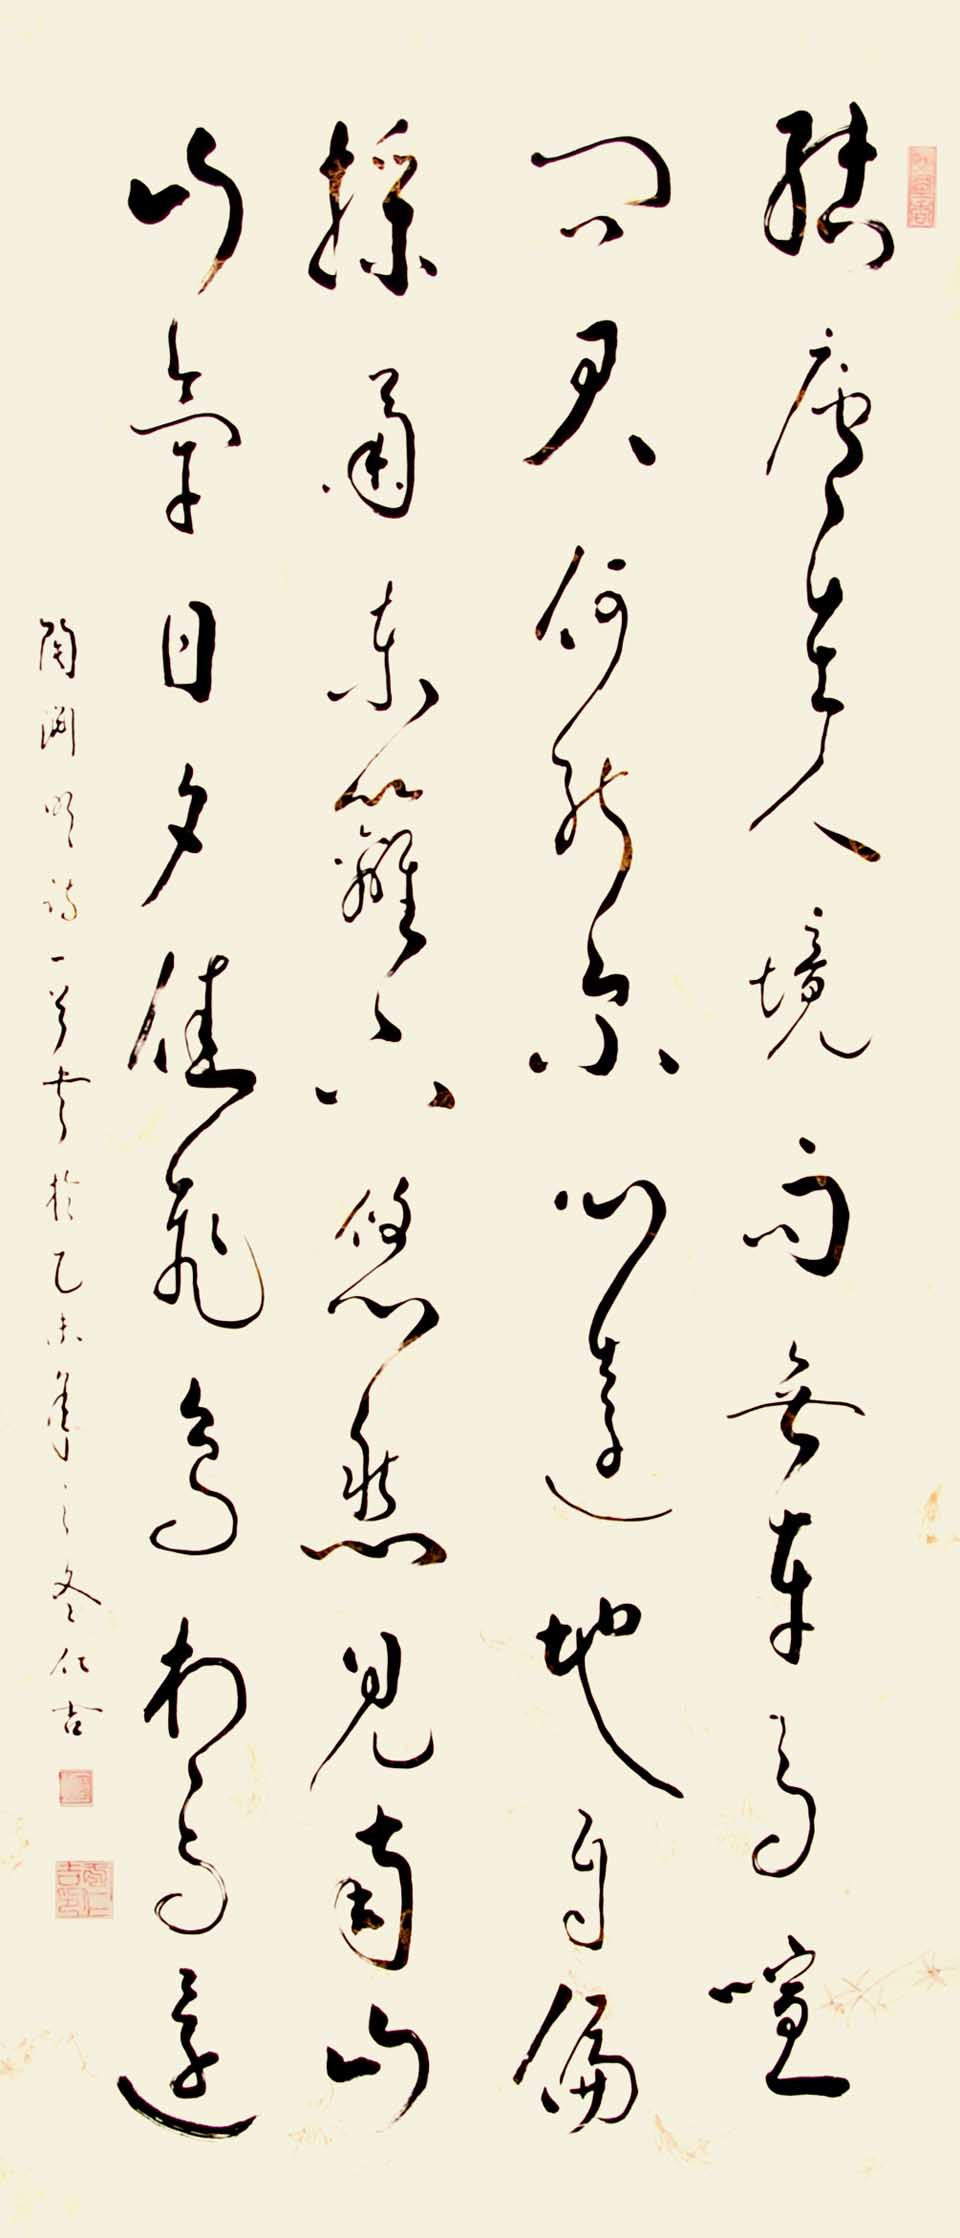 結廬在人境而無車馬喧
問君何能爾心遠地自偏
採菊東籬下悠然見南山
山氣日夕佳飛鳥相與還
陶淵明詩一首書於乙未年之冬仁吉